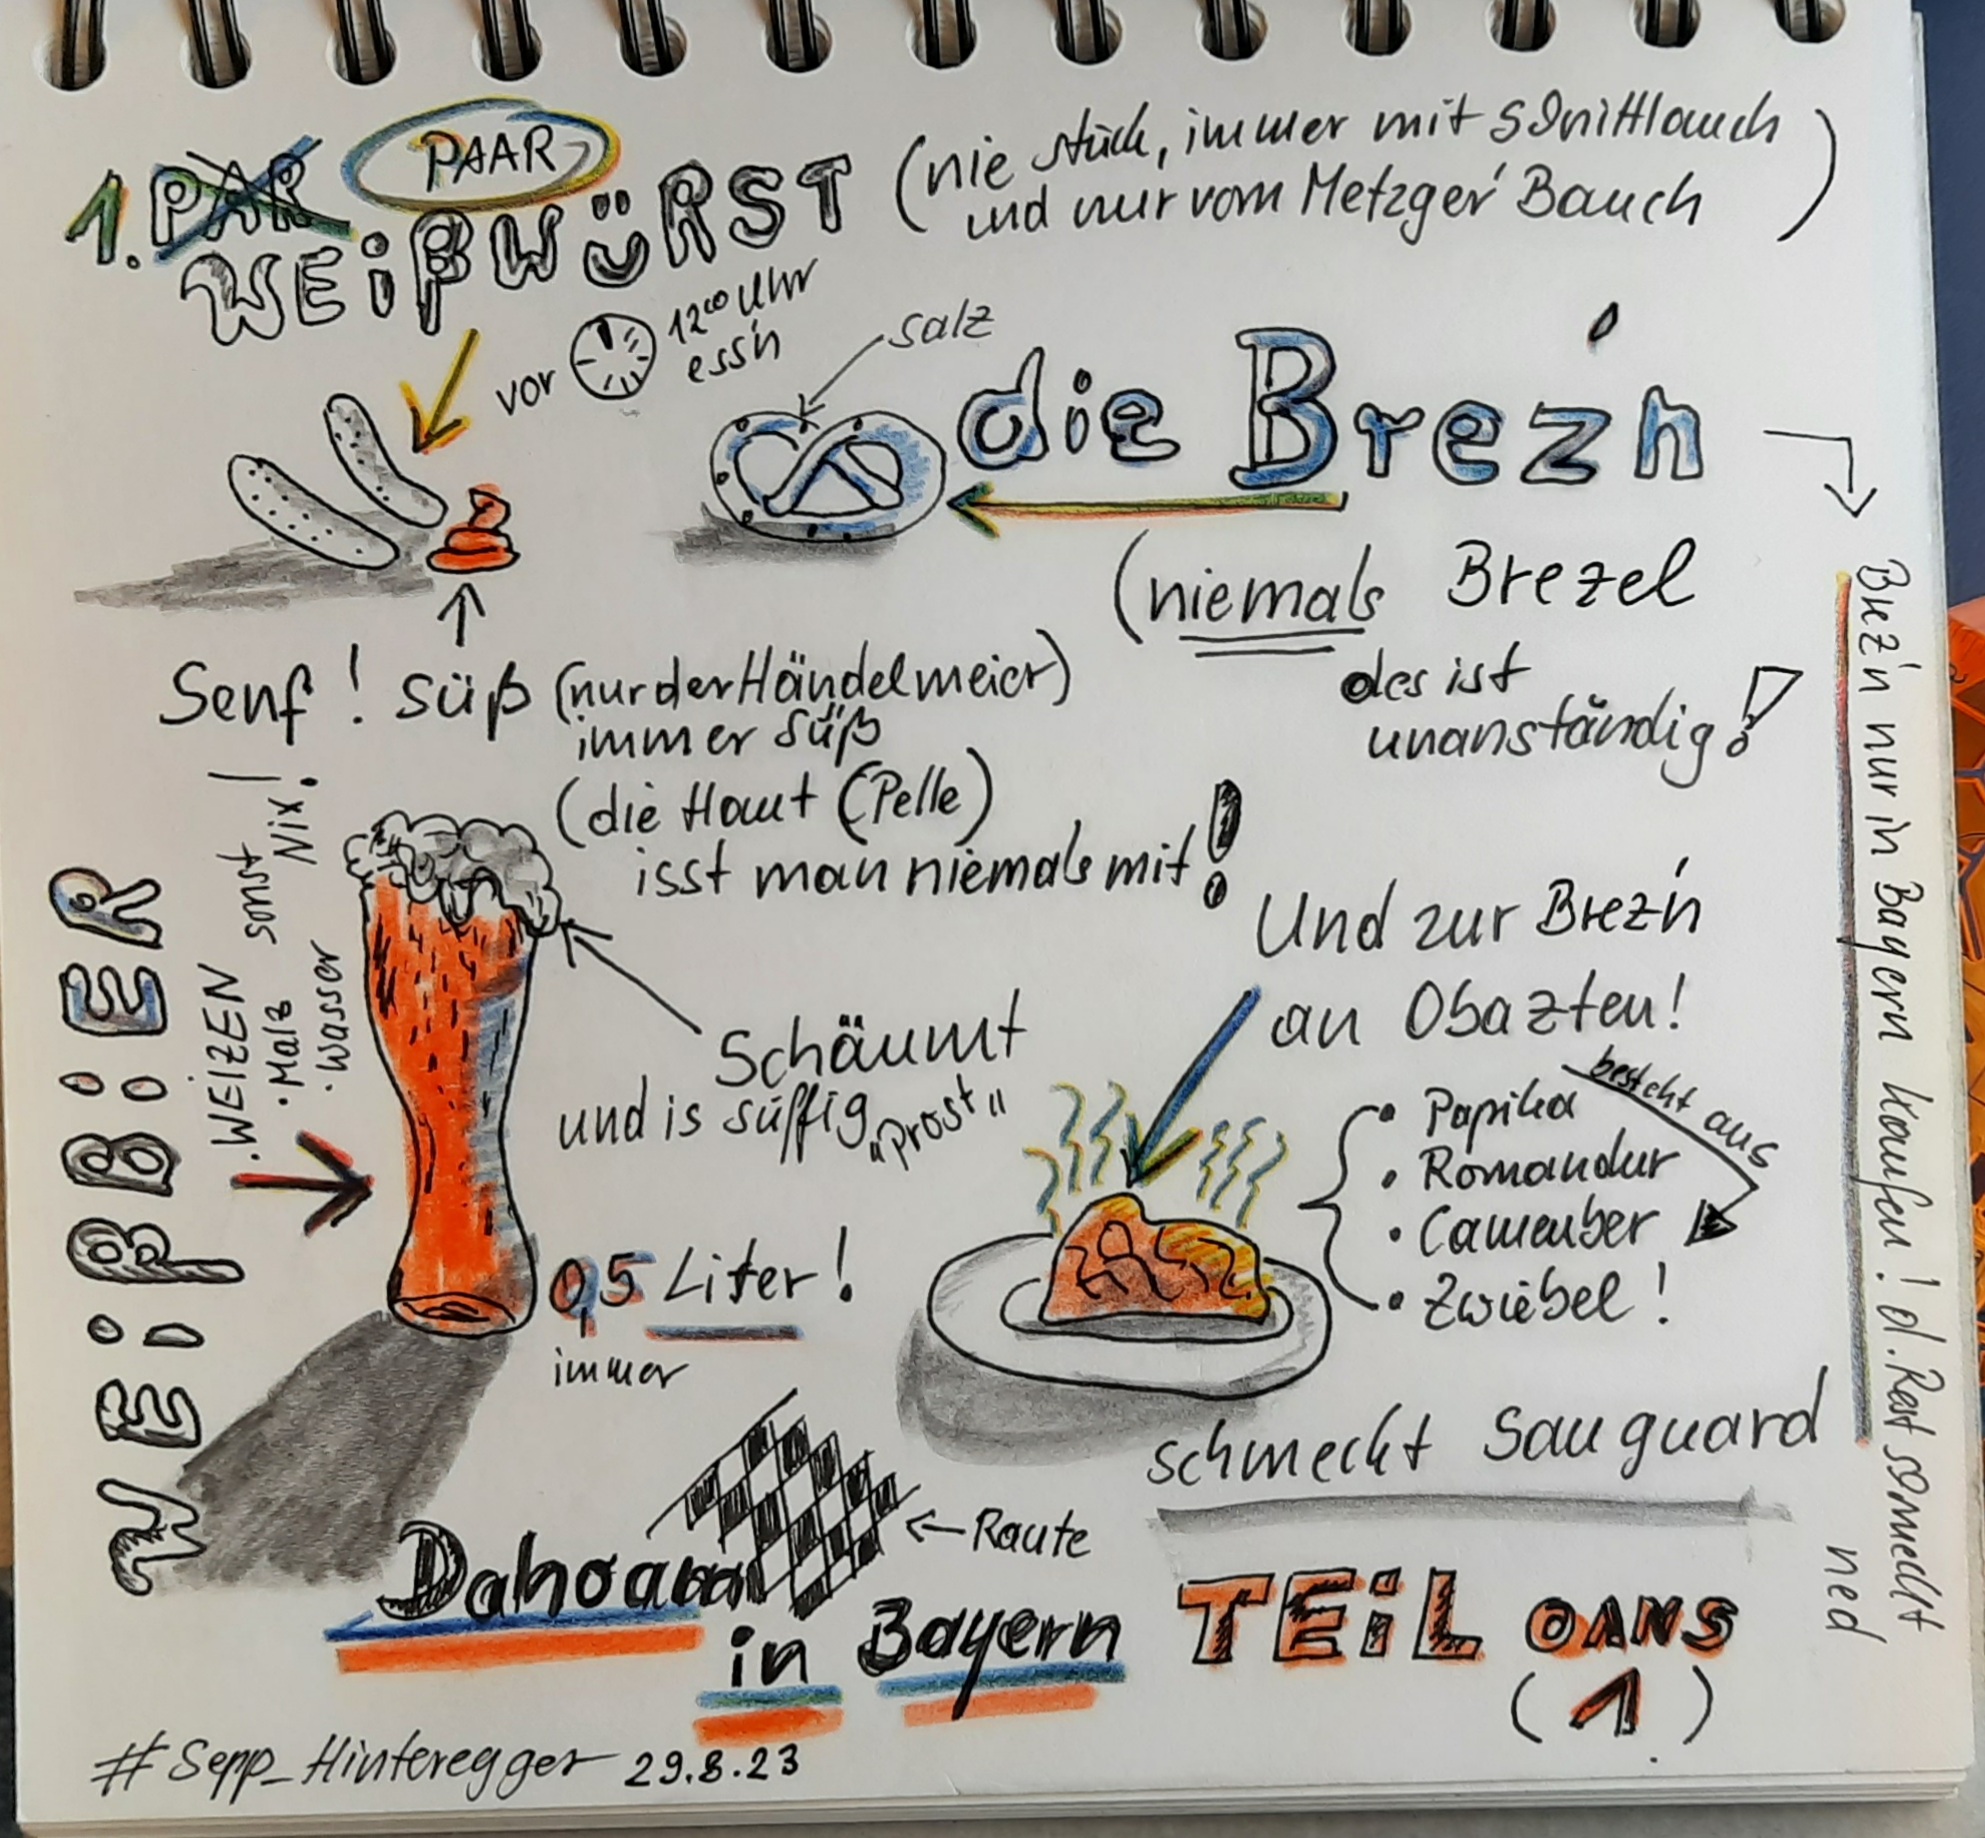 1. PAR PAAR
WEIßWÜRST
(nie stück, immer mit Schnittlauch
und nur vom Metzger Bauch)
vor 12⁰⁰ Uhr
ess'n
salz
die Brez'n
(niemals Brezel
des ist
unanständig!
Brez'n nur in Bayern kaufen! d. Rest schmeckt
ned
Senf! süß (nur der Händelmeier)
immer süß
(die Haut (Pelle)
isst man niemals mit!
WEIßBIER
. WEIZEN
· Malz sonst
· Wasser Nix!
Schäumt
und is süffig „Prost"
0,5 Liter!
immer
Und zur Brez'n
an Obazten!
besteht aus
• Papika
• Romandur
• Camenber
• Zwiebel!
schmeckt Sauguard
Raute
Dahoaam
in Bayern
TEIL OANS
(1)
#Sepp_Hinteregger 29.8.23